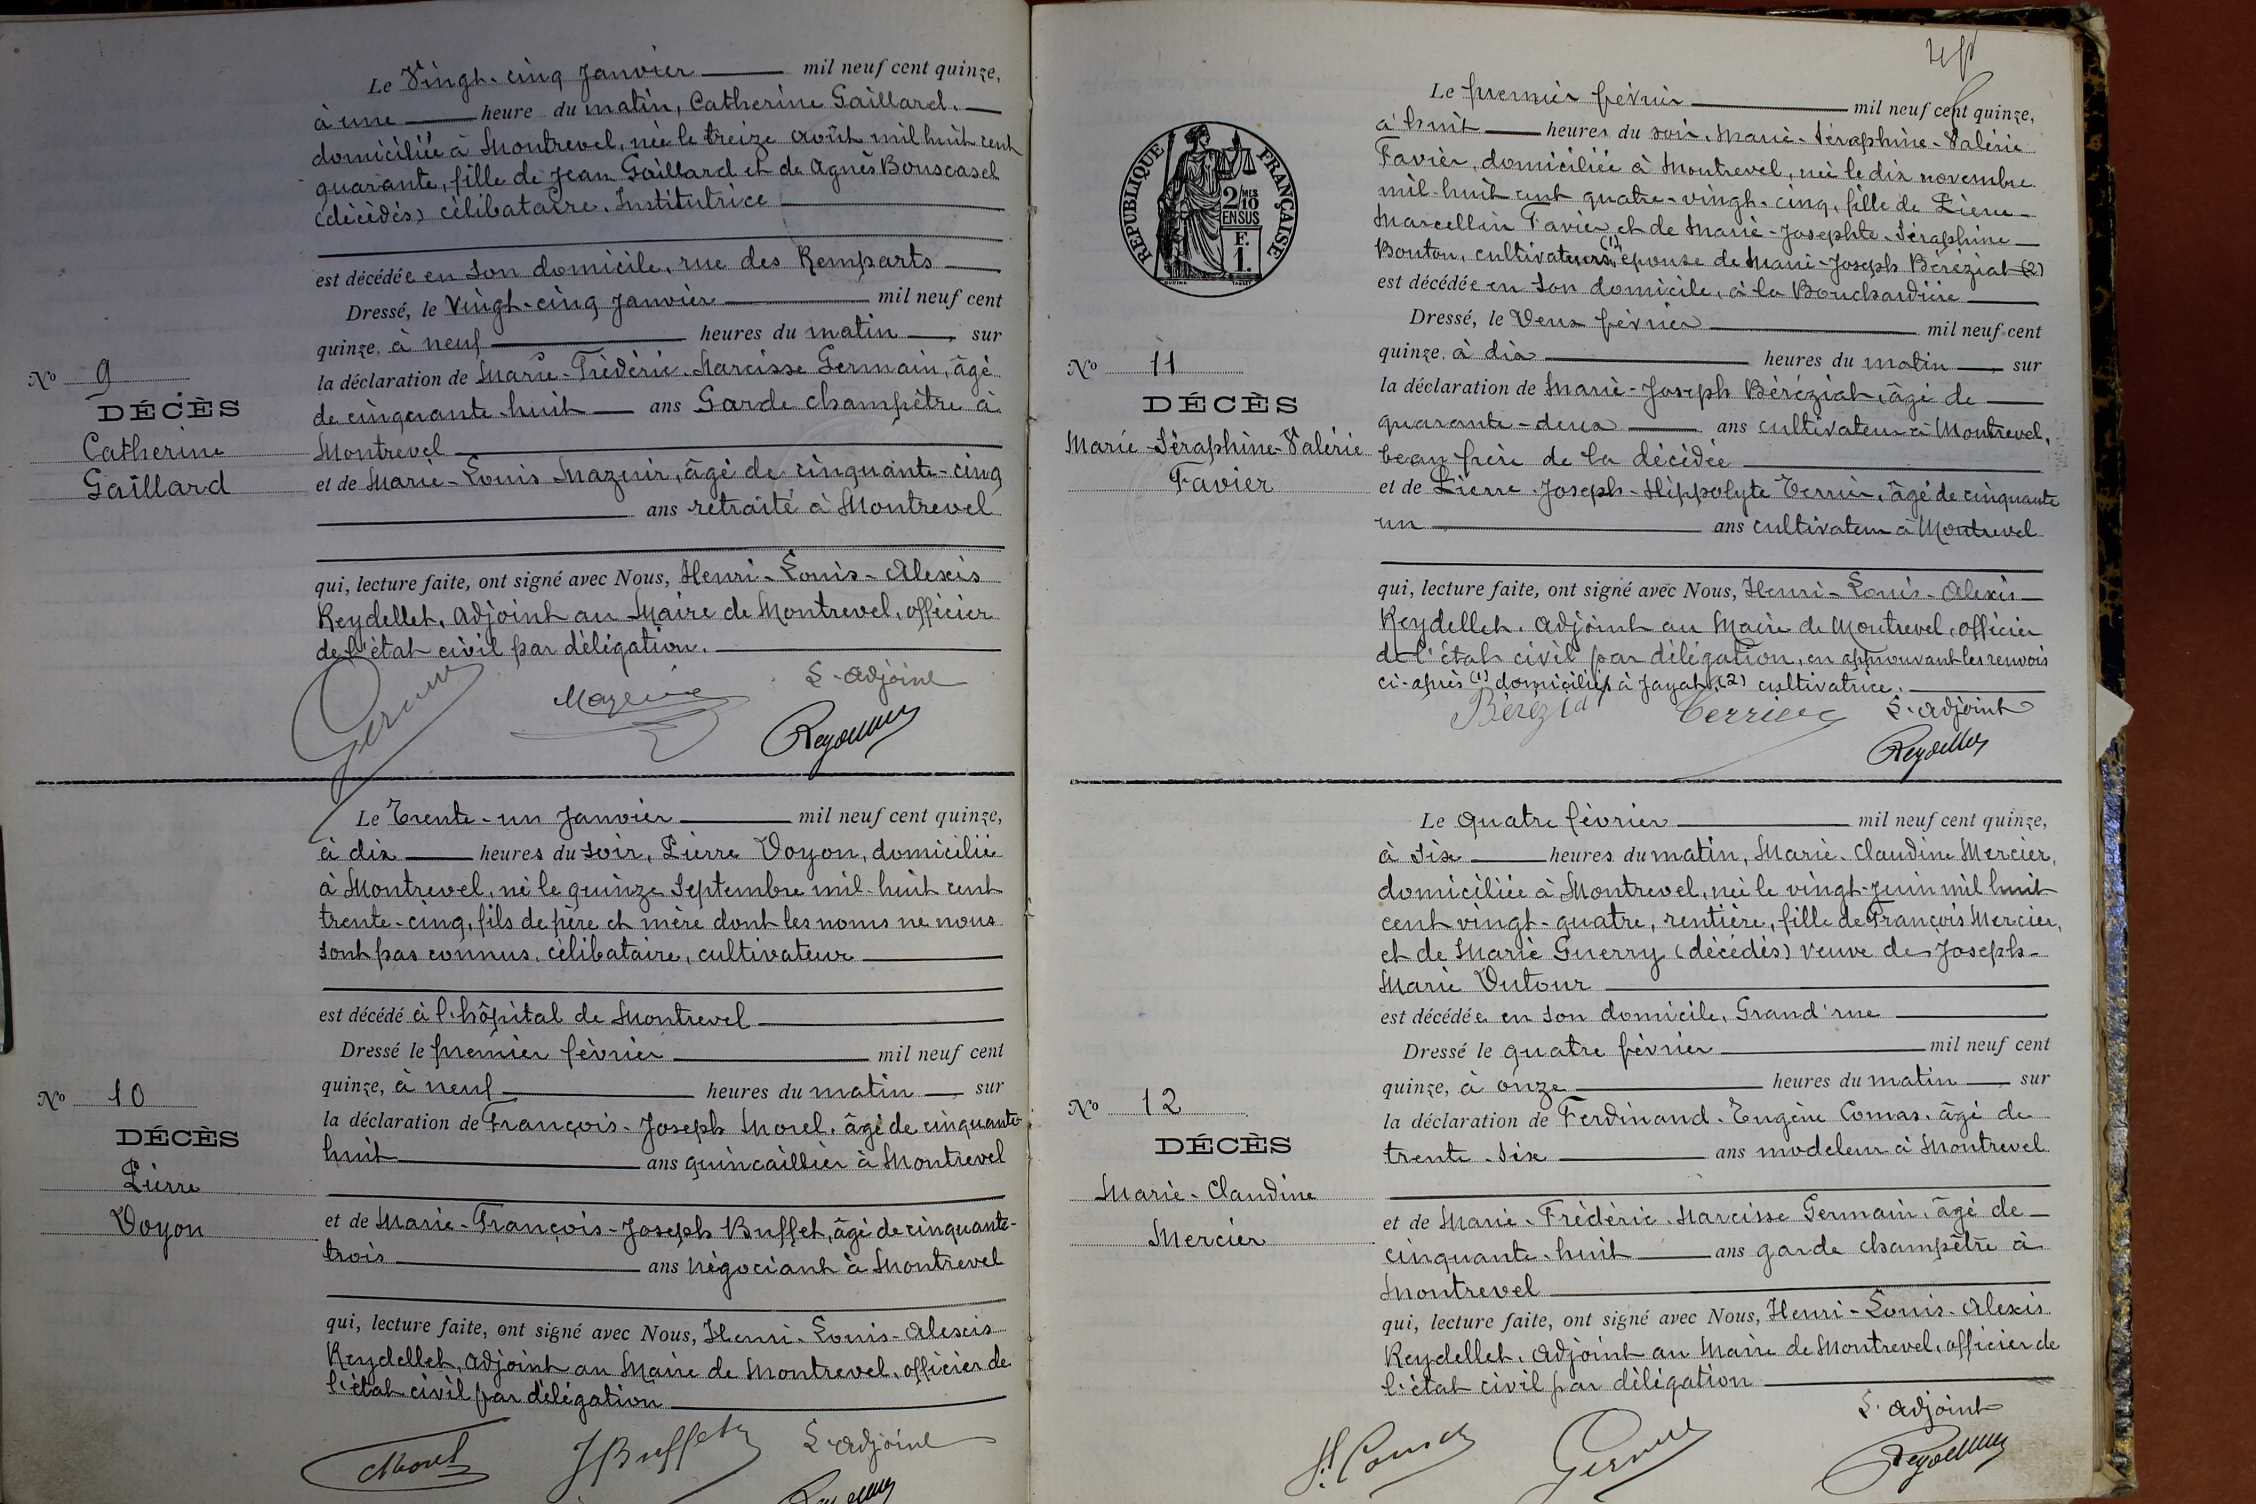 Le Vingt-cinq Janvier mil neuf cent quinze,
à une heure du matin, Catherine Gaillard,
domiciliée à Montrevel, née le treize août mil huit cent
quarante, fille de Jean Gaillard et de Agnès Bouscasel
(décédés) célibataire, Institutrice
est décédée en son domicile, rue des Remparts
Dressé, le Vingt-cinq Janvier mil neuf cent
quinze, à neuf heures du matin, sur
la déclaration de Marie-Frédéric-Narcisse Germain, âgé
de cinquante-huit ans Garde champêtre à
Montrevel
et de Marie-Louis Mazuir, âgé de cinquante-cinq
ans retraité à Montrevel
qui, lecture faite, ont signé avec Nous, Henri-Louis-Alexis
Reydellet, adjoint au Maire de Montrevel, officier
de l'état civil par délégation.
L'adjoint
Nº 9
DÉCÈS
Catherine
Gaillard
Le Trente-un Janvier mil neuf cent quinze,
à dix heures du soir, Pierre Voyon, domicilié
à Montrevel, né le quinze Septembre mil-huit cent
trente-cinq, fils de père et mère dont les noms ne nous
sont pas connus, célibataire, cultivateur
est décédé à l'hôpital de Montrevel
Dressé le premier février mil neuf cent
quinze, à neuf heures du matin, sur
la déclaration de François-Joseph Morel, âgé de cinquante-
huit ans quincaillier à Montrevel
et de Marie-François-Joseph Buffet, âgé de cinquante-
trois ans négociant à Montrevel
qui, lecture faite, ont signé avec Nous, Henri-Louis-Alexis
Reydellet, adjoint au Maire de Montrevel, officier de
l'état civil par délégation
Morel
J Buffet
L'adjoint
Nº 10
DÉCÈS
Pierre
Voyon
RÉPUBLIQUE FRANÇAISE
2/10 MES
EN SUS
F.
1.
Le premier février mil neuf cent quinze,
à huit heures du soir, Marie-Séraphine-Valérie
Favier, domiciliée à Montrevel, née le dix novembre
mil-huit cent quatre-vingt-cinq, fille de Pierre-
Marcellin Favier et de Marie-Josephte-Séraphine
Bouton, cultivateurs (1), épouse de Marie-Joseph Béréziat (2)
est décédée en son domicile, à la Bouchardière
Dressé, le Deux février mil neuf cent
quinze, à dix heures du matin, sur
la déclaration de Marie-Joseph Béréziat, âgé de
quarante-deux ans cultivateur à Montrevel,
beau frère de la décédée
et de Pierre-Joseph-Hippolyte Terrier, âgé de cinquante
un ans cultivateur à Montrevel
qui, lecture faite, ont signé avec Nous, Henri-Louis-Alexis
Reydellet, adjoint au Maire de Montrevel, officier
de l'état civil par délégation, en approuvant les renvois
ci-après (1) domiciliés à Jayat, (2) cultivatrice.
Béréziat
Terrier
L'adjoint
Reydellet
Nº 11
DÉCÈS
Marie-Séraphine-Valérie
Favier
Le quatre février mil neuf cent quinze,
à six heures du matin, Marie-Claudine Mercier,
domiciliée à Montrevel, née le vingt-Juin mil huit
cent vingt-quatre, rentière, fille de François Mercier,
et de Marie Guerry (décédés) veuve de Joseph-
Marie Dutour
est décédée en son domicile, Grand'rue
Dressé le quatre février mil neuf cent
quinze, à onze heures du matin, sur
la déclaration de Ferdinand-Eugène Comas, âgé de
trente-six ans modeleur à Montrevel
et de Marie-Frédéric-Narcisse Germain, âgé de
cinquante-huit ans garde champêtre à
Montrevel
qui, lecture faite, ont signé avec Nous, Henri-Louis-Alexis
Reydellet, adjoint au Maire de Montrevel, officier de
l'état civil par délégation
L'adjoint
Nº 12
DÉCÈS
Marie-Claudine
Mercier